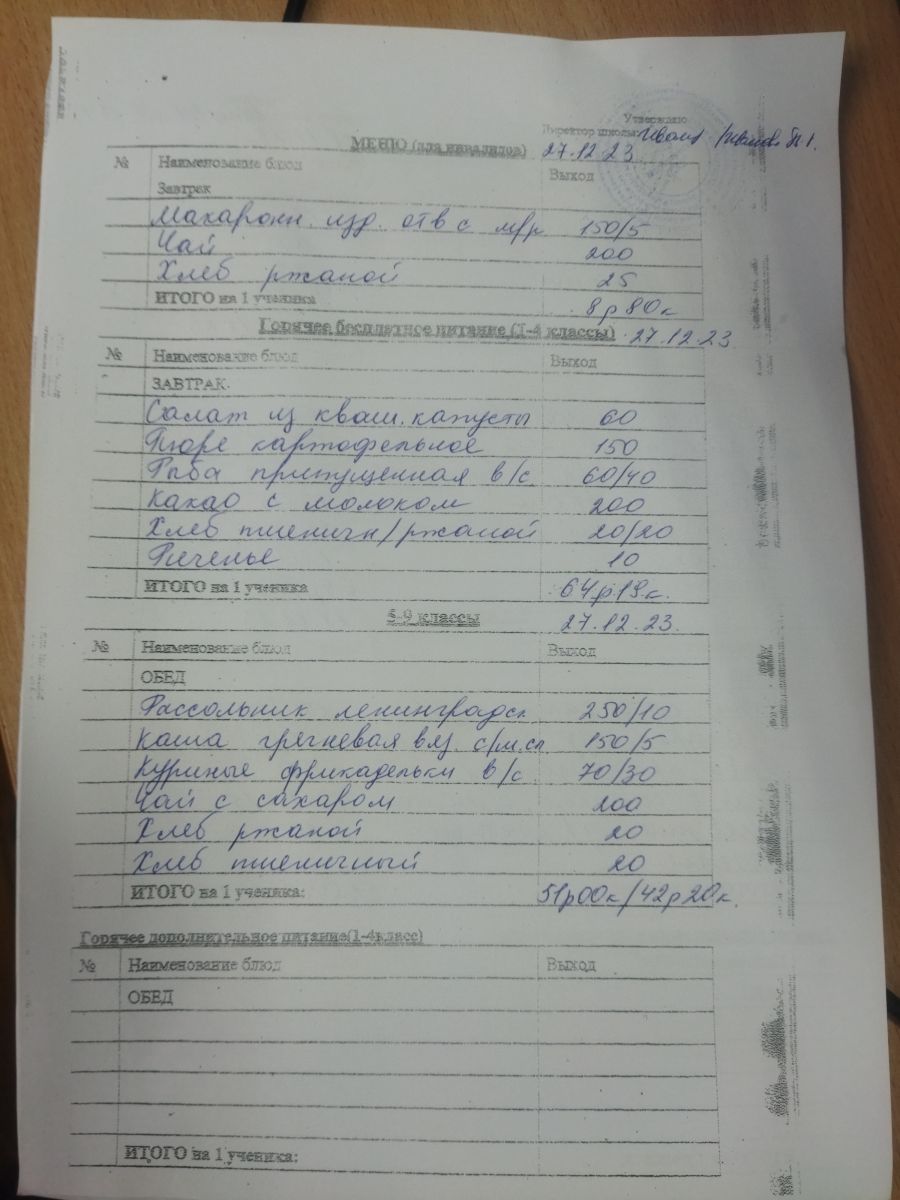 Утверждаю
Директор школы
МЕНЮ (для инвалидов) 27.12.23
№ Наименование блюд Выход
Завтрак
Макаронн. изд. отв с м/р 150/5
Чай 200
Хлеб ржаной 25
ИТОГО на 1 ученика 8р80к
Горячее бесплатное питание (1-4 классы) 27.12.23
№ Наименование блюд Выход
ЗАВТРАК
Салат из кваш. капусты 60
Пюре картофельное 150
Рыба припущенная в/с 60/40
Какао с молоком 200
Хлеб пшеничн/ржаной 20/20
Печенье 10
ИТОГО на 1 ученика 64р19к.
5-9 классы 27.12.23.
№ Наименование блюд Выход
ОБЕД
Рассольник ленинградск 250/10
Каша гречневая вяз. с/м.сл 150/5
Куриные фрикадельки в/с 70/30
Чай с сахаром 200
Хлеб ржаной 20
Хлеб пшеничный 20
ИТОГО на 1 ученика: 51р00к/42р20к.
Горячее дополнительное питание(1-4класс)
№ Наименование блюд Выход
ОБЕД
ИТОГО на 1 ученика: